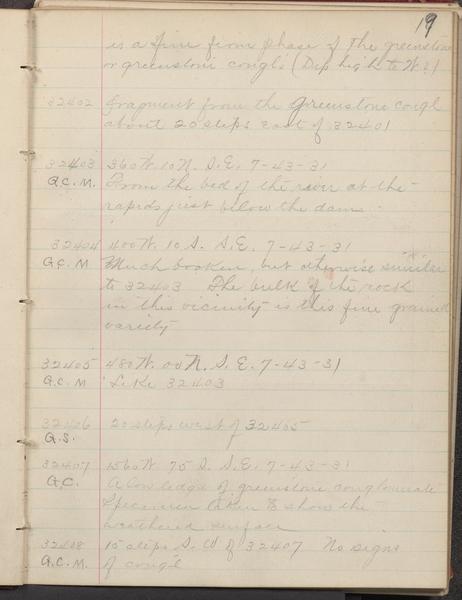 19
is a fine firm phase of the greenstone
or greenstone congl. (Dip high to W.?)
32402 Fragment from the Greenstone congl
about 20 steps east of 32401
32403 360 W. 10 N. S.E. 7-43-31
G.C.M. From the bed of the river at the
rapids just below the dam.
32404 400 W. 10 S. S.E. 7-43-31
G.C.M Much broken, but otherwise similar
to 32403 The bulk of the rock
in this vicinity is this fine grained
variety
32405 480 W. 00 N. S.E. 7-43-31
G.C.M Like 32403
32406 20 steps west of 32405
G.S.
32407 1560 W. 75 S. S.E. 7-43-31
G.C. A low ledge of greenstone conglomerate
Specimen taken to show the
weathered surface
32408 15 steps S.W of 32407 No signs
G.C.M. of congl